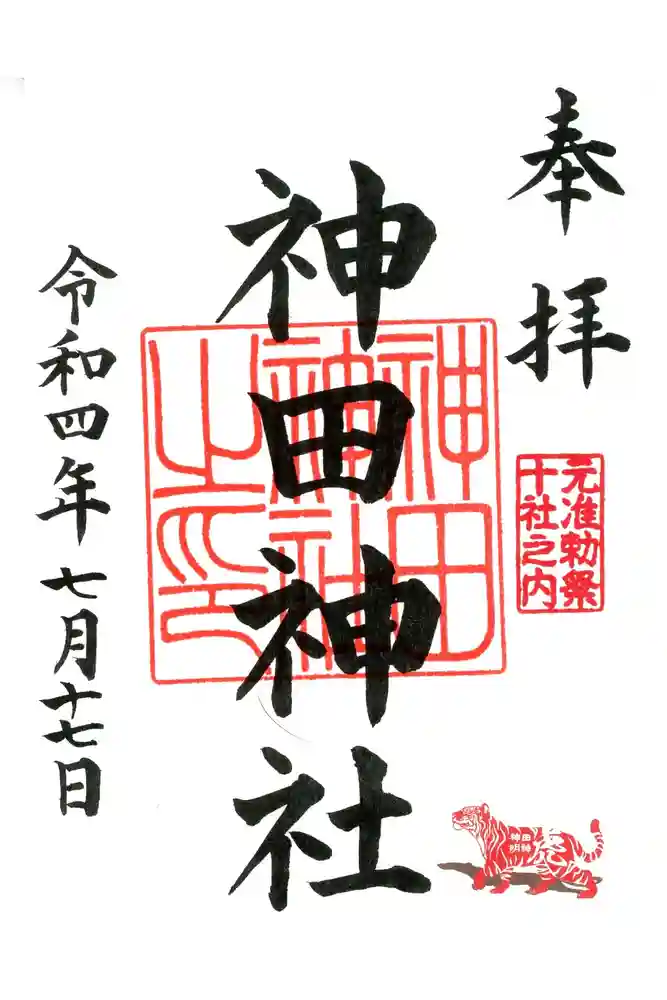 奉拝
元准勅祭
十社之内
神田神社
神田
神社
之印
令和四年七月十七日
神田
明神